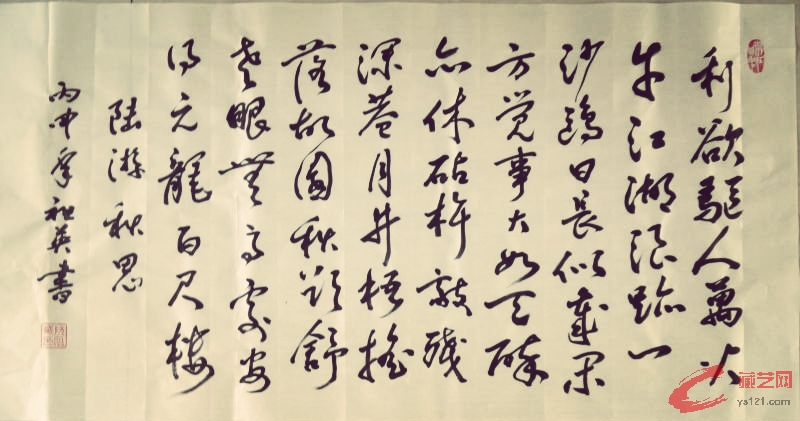 利欲驅人萬火
牛江湖浪跡一
沙鷗日長似歲閑
方觉事大如天醉
亦休砧杵敲殘
深巷月井梧搖
落故園秋欲舒
老眼無高處安
得元龍百尺樓
陆游秋思
丙申年祖英書
藏艺网
ys121.com